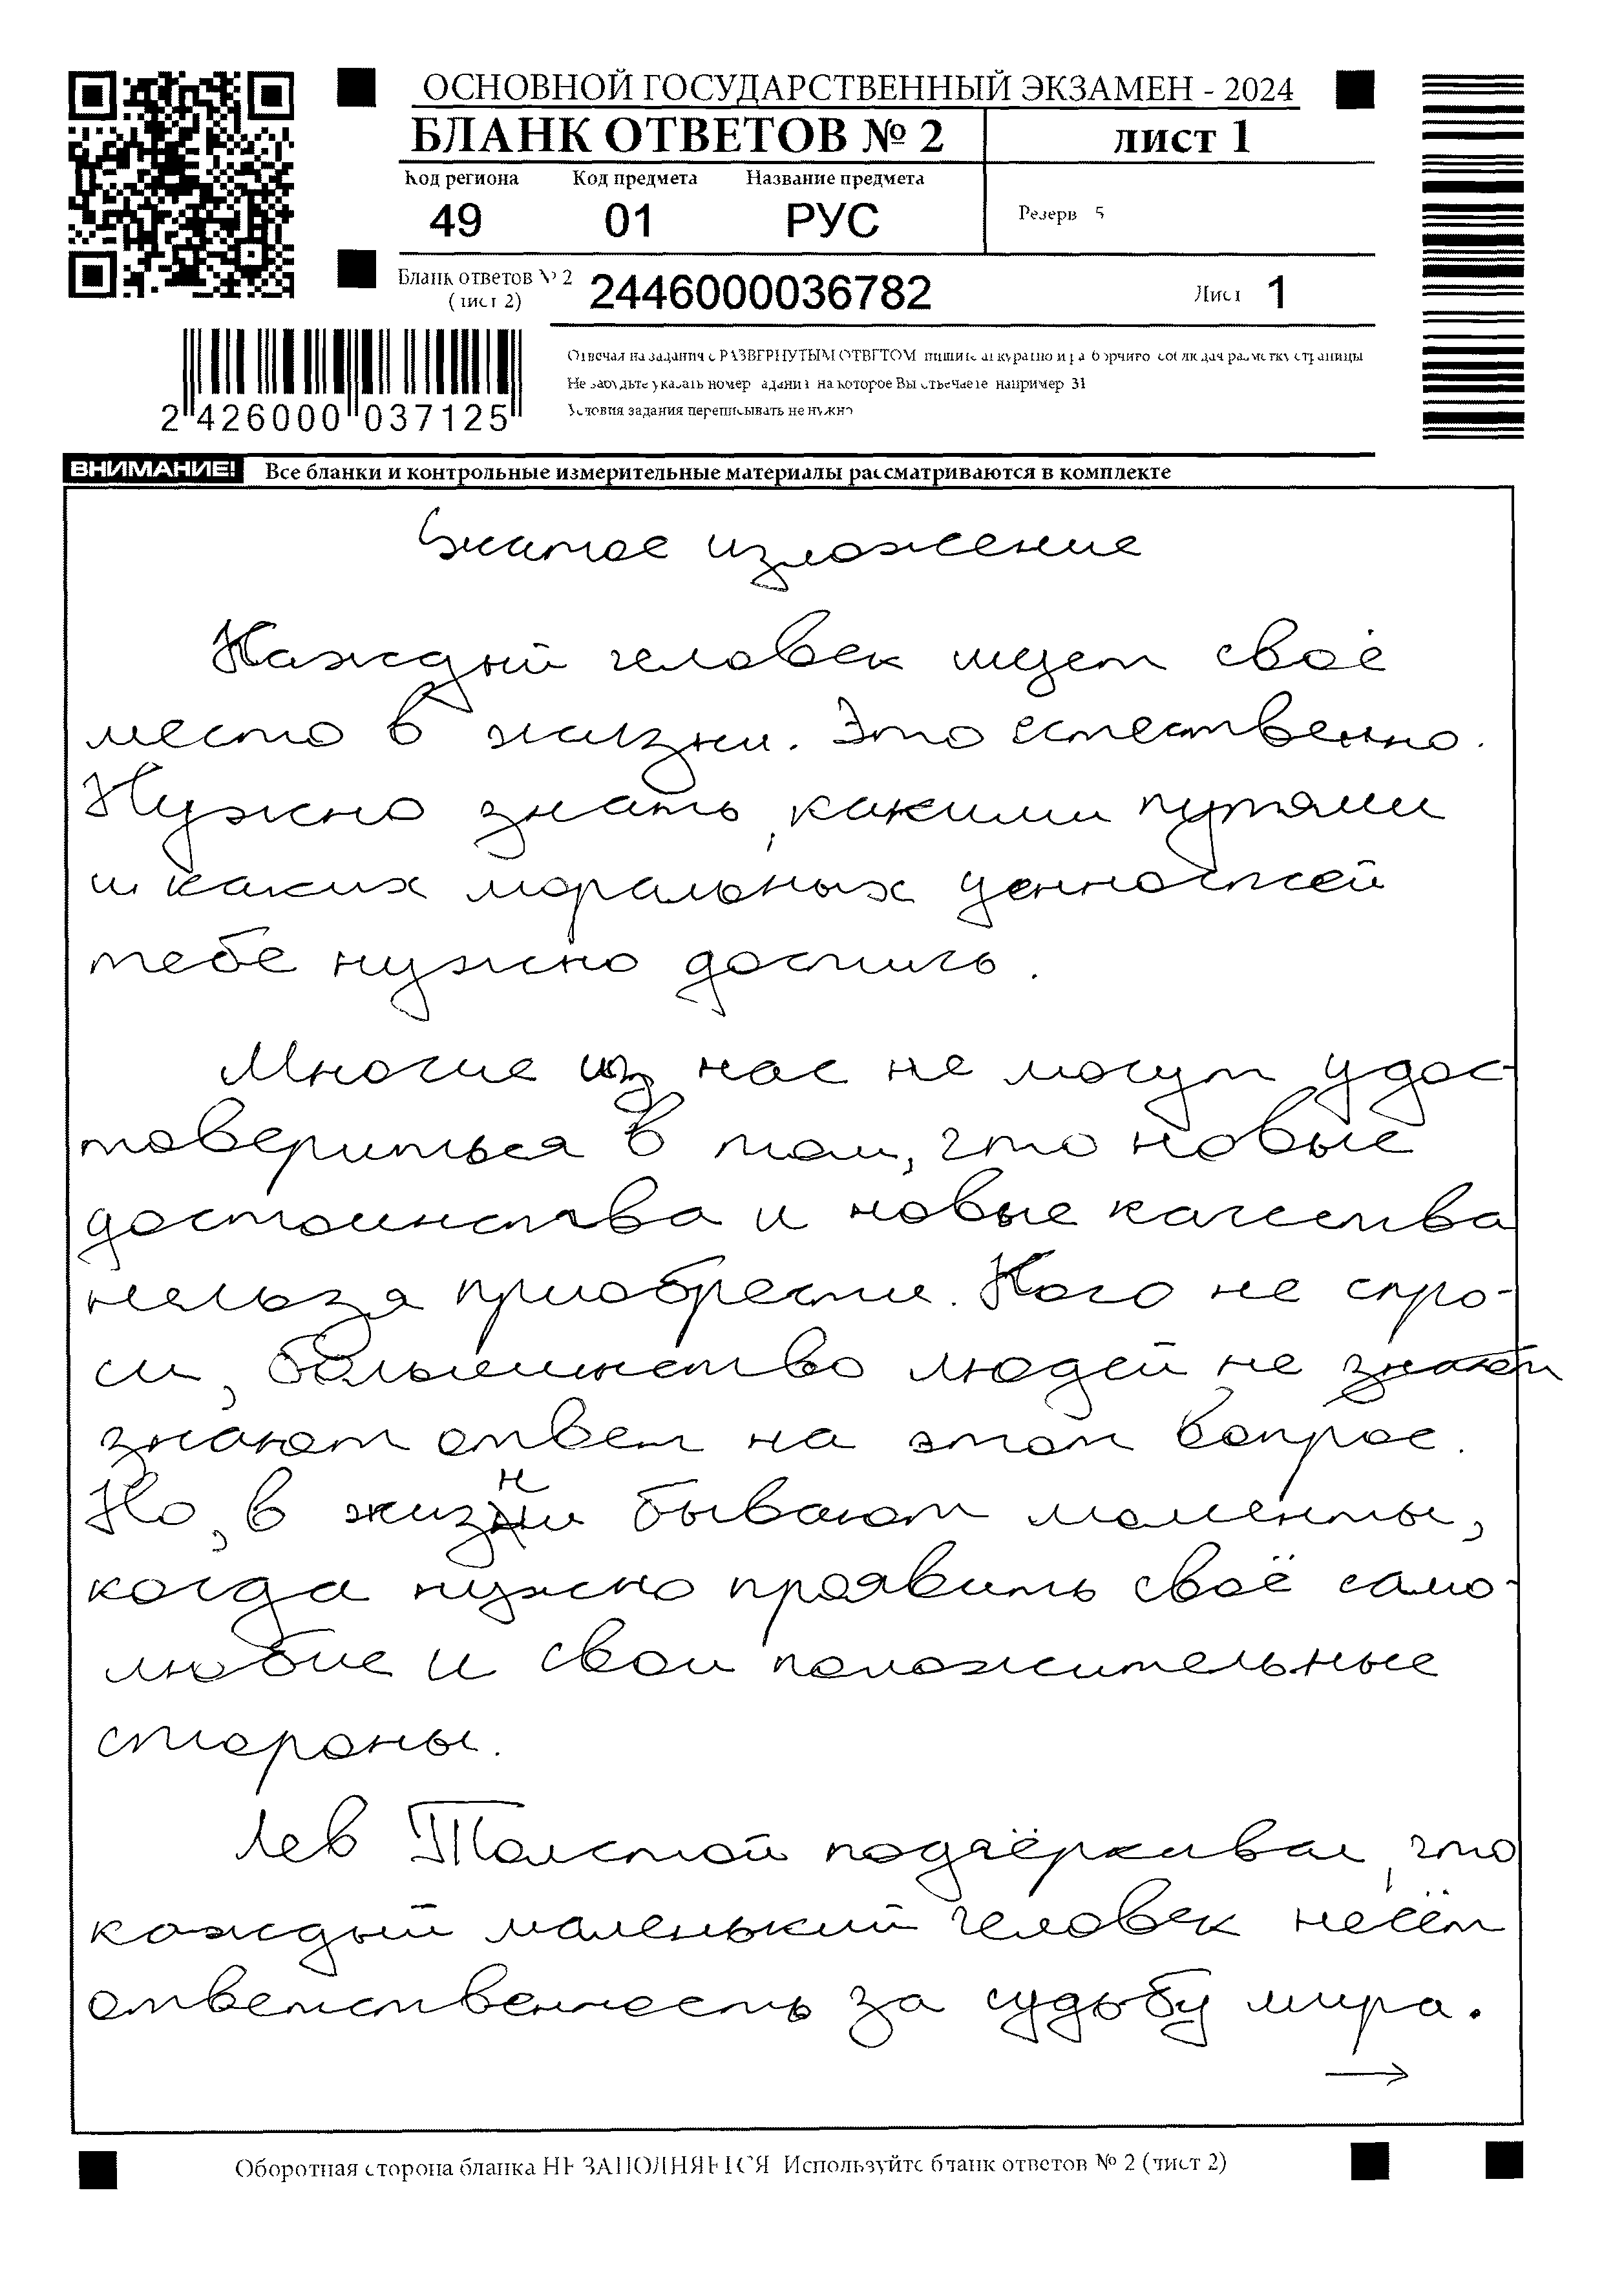 ОСНОВНОЙ ГОСУДАРСТВЕННЫЙ ЭКЗАМЕН - 2024
БЛАНК ОТВЕТОВ № 2
лист 1
Код региона Код предмета Название предмета
49 01 РУС
Резерв 5
Бланк ответов № 2
(лист 2)
2446000036782
Лист 1
2 426000 037125
Отвечая на задания с РАЗВЕРНУТЫМ ОТВЕТОМ пишите аккуратно и разборчиво соблюдая разметку страницы
Не забудьте указать номер задания на которое Вы отвечаете например 31
Условия задания переписывать не нужно
ВНИМАНИЕ! Все бланки и контрольные измерительные материалы рассматриваются в комплекте
Сжатое изложение
Каждый человек ищет своё
место в жизни. Это естественно.
Нужно знать, какими путями
и каких моральных ценностей
тебе нужно достичь.
Многие из нас не могут удос-
товериться в том, что новые
достоинства и новые качества
нельзя приобрести. Кого не спро-
си, большинство людей не знают
знают ответ на этот вопрос.
Но, в жизни бывают моменты,
когда нужно проявить своё само-
любие и свои положительные
стороны.
Лев Толстой подчёркивал, что
каждый маленький человек несёт
ответственность за судьбу мира.
→
Оборотная сторона бланка НЕ ЗАПОЛНЯЕТСЯ Используйте бланк ответов № 2 (лист 2)